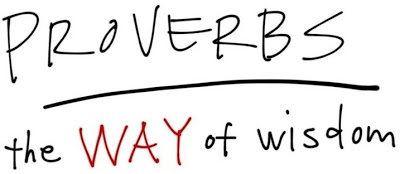 PROVERBS
the WAY of wisdom